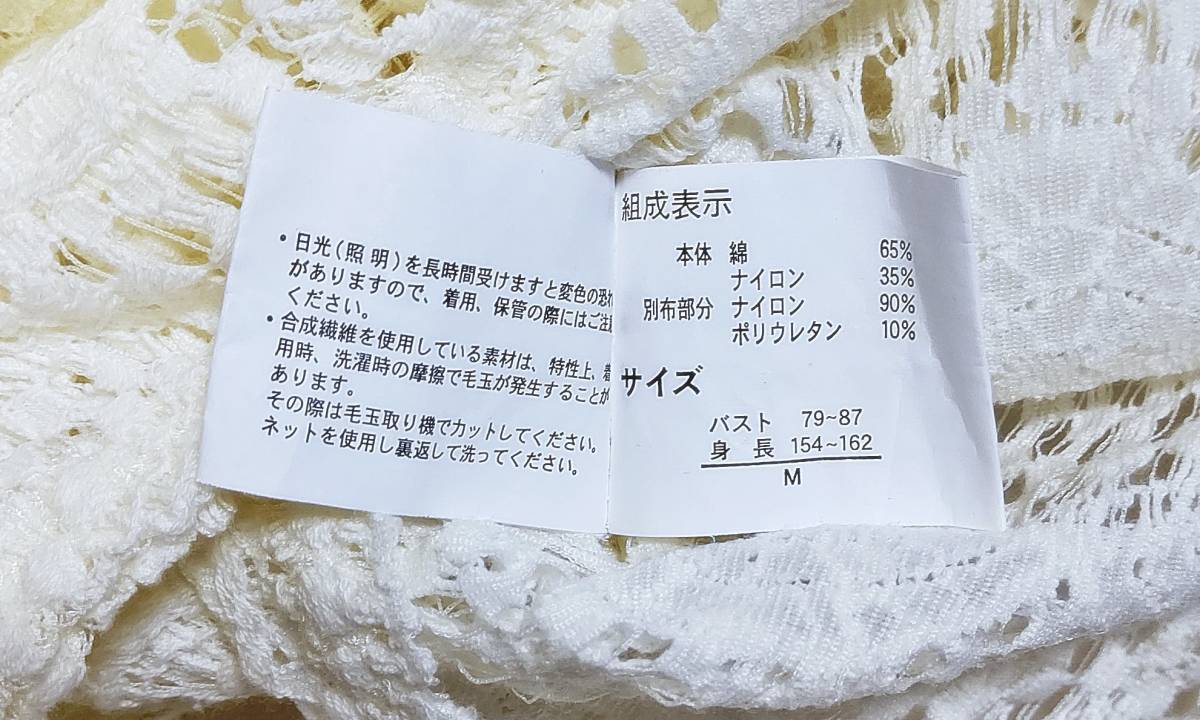 ・日光(照明)を長時間受けますと変色の恐
がありますので、着用、保管の際にはご注
ください。
・合成繊維を使用している素材は、特性上、着
用時、洗濯時の摩擦で毛玉が発生することが
あります。
その際は毛玉取り機でカットしてください。
ネットを使用し裏返して洗ってください。
組成表示
本体 綿 65%
ナイロン 35%
別布部分 ナイロン 90%
ポリウレタン 10%
サイズ
バスト 79~87
身長 154~162
M